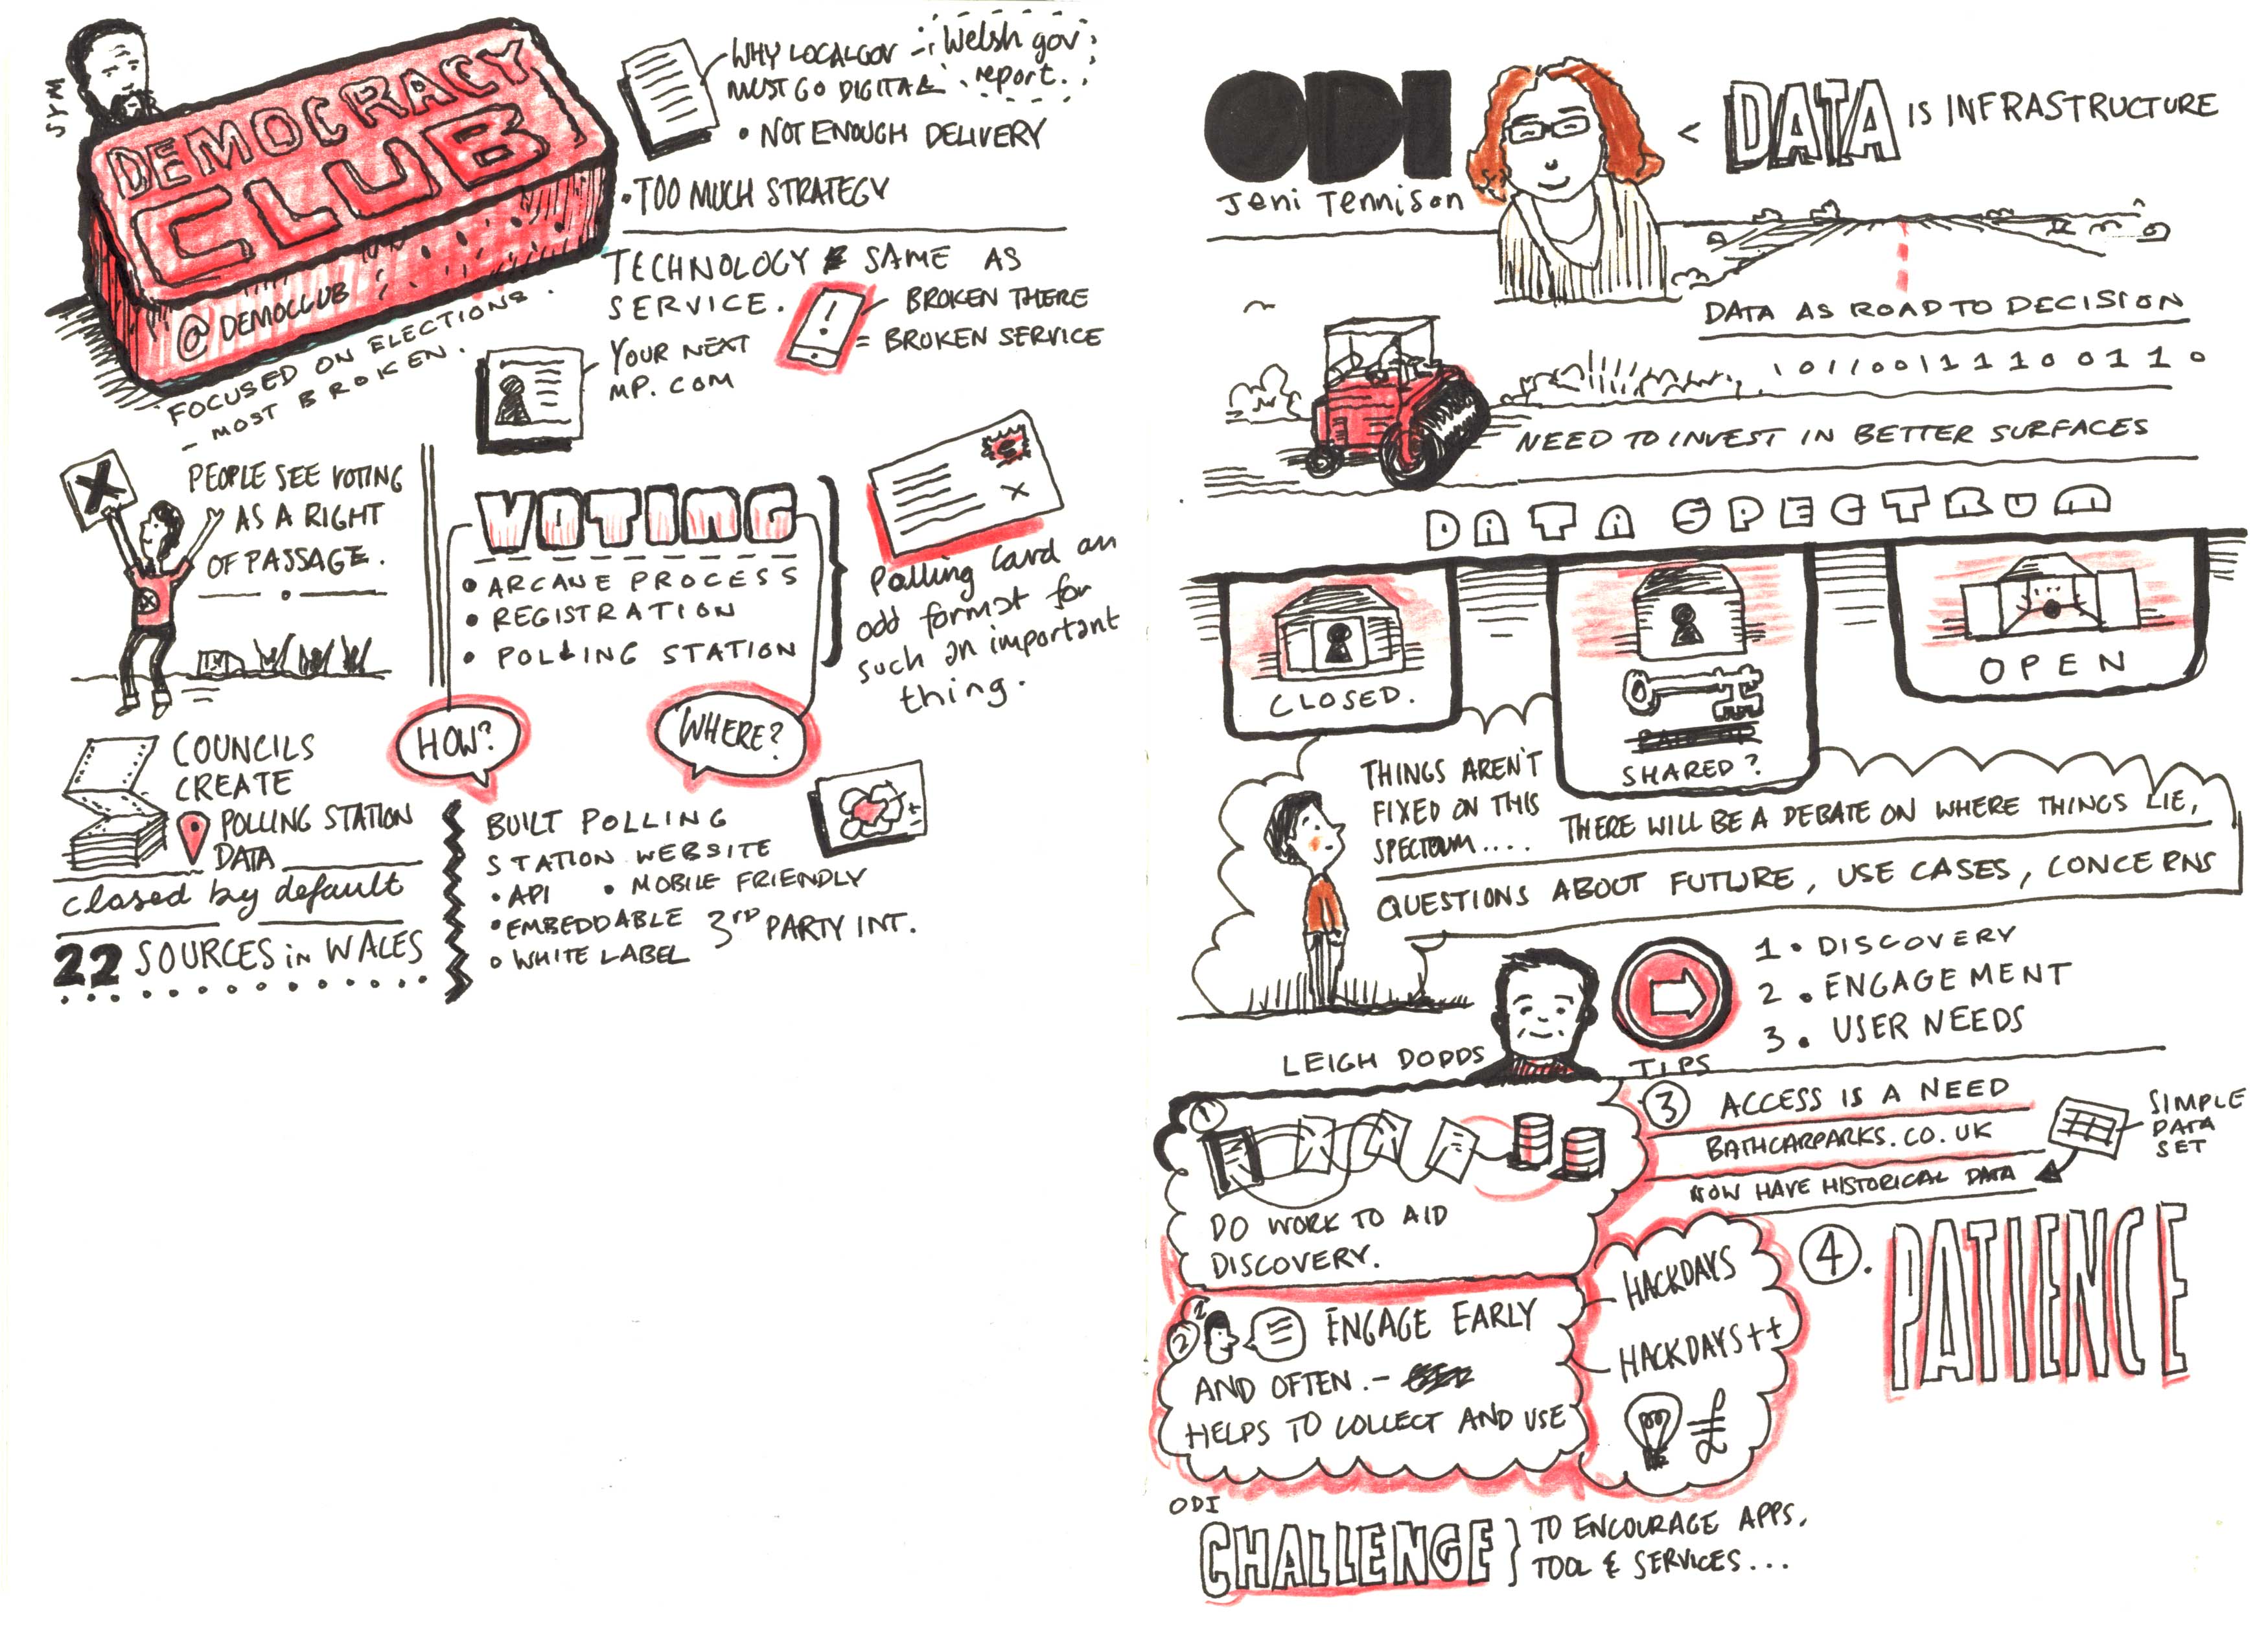 SYM
DEMOCRACY
CLUB
@DEMOCLUB
FOCUSED ON ELECTIONS.
- MOST BROKEN.
WHY LOCALGOV
MUST GO DIGITAL
Welsh gov
report.
• NOT ENOUGH DELIVERY
• TOO MUCH STRATEGY
TECHNOLOGY SAME AS
SERVICE.
!
BROKEN THERE
= BROKEN SERVICE
YOUR NEXT
MP.COM
X
PEOPLE SEE VOTING
AS A RIGHT
OF PASSAGE.
VOTING
• ARCANE PROCESS
• REGISTRATION
• POLLING STATION
X
Polling Card an
odd format for
such an important
thing.
HOW?
WHERE?
COUNCILS
CREATE
POLLING STATION
DATA
closed by default
22 SOURCES in WALES
BUILT POLLING
STATION WEBSITE
• API • MOBILE FRIENDLY
• EMBEDDABLE 3RD PARTY INT.
• WHITE LABEL
ODI
Jeni Tennison
< DATA IS INFRASTRUCTURE
DATA AS ROAD TO DECISION
101100111100110
NEED TO INVEST IN BETTER SURFACES
DATA SPECTRUM
CLOSED.
SHARED?
OPEN
THINGS AREN'T
FIXED ON THIS
SPECTRUM....
THERE WILL BE A DEBATE ON WHERE THINGS LIE,
QUESTIONS ABOUT FUTURE, USE CASES, CONCERNS
LEIGH DODDS
TIPS
1. DISCOVERY
2. ENGAGEMENT
3. USER NEEDS
1
DO WORK TO AID
DISCOVERY.
3 ACCESS IS A NEED
BATHCARPARKS.CO.UK
NOW HAVE HISTORICAL DATA
SIMPLE
DATA
SET
2 ENGAGE EARLY
AND OFTEN. -
HELPS TO COLLECT AND USE
HACKDAYS
HACKDAYS++
£
4. PATIENCE
ODI
CHALLENGE } TO ENCOURAGE APPS,
TOOL & SERVICES...